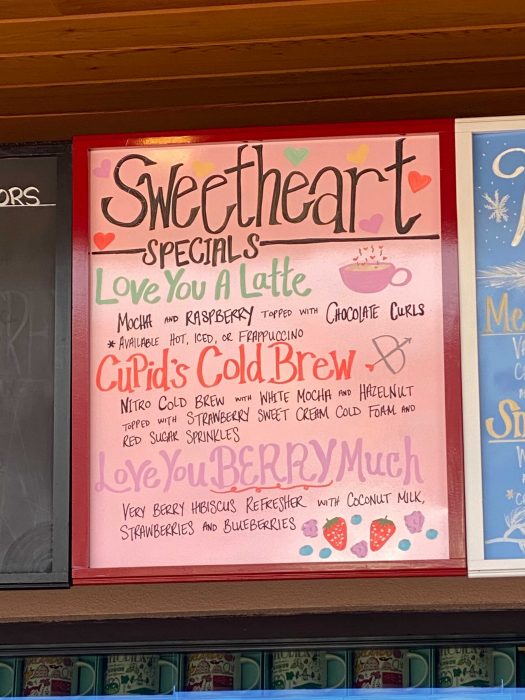 ORS
Sweetheart
SPECIALS
Love You A Latte
MOCHA AND RASPBERRY TOPPED WITH CHOCOLATE CURLS
* AVAILABLE HOT, ICED, OR FRAPPUCCINO
CUPID'S COLD BREW
NITRO COLD BREW WITH WHITE MOCHA AND HAZELNUT
TOPPED WITH STRAWBERRY SWEET CREAM COLD FOAM AND
RED SUGAR SPRINKLES
Love You BERRY Much
VERY BERRY HIBISCUS REFRESHER WITH COCONUT MILK,
STRAWBERRIES AND BLUEBERRIES
Me